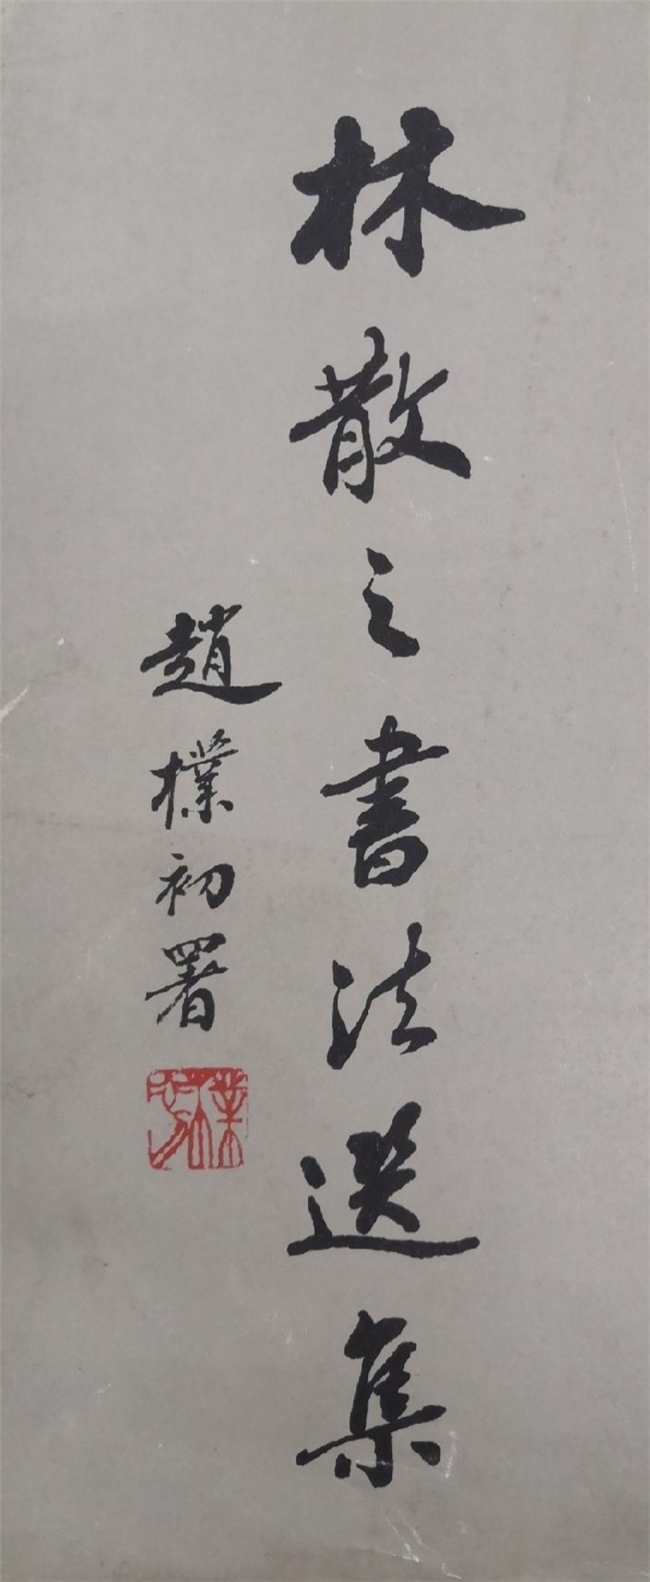 林散之书法選集
趙樸初署
樸初